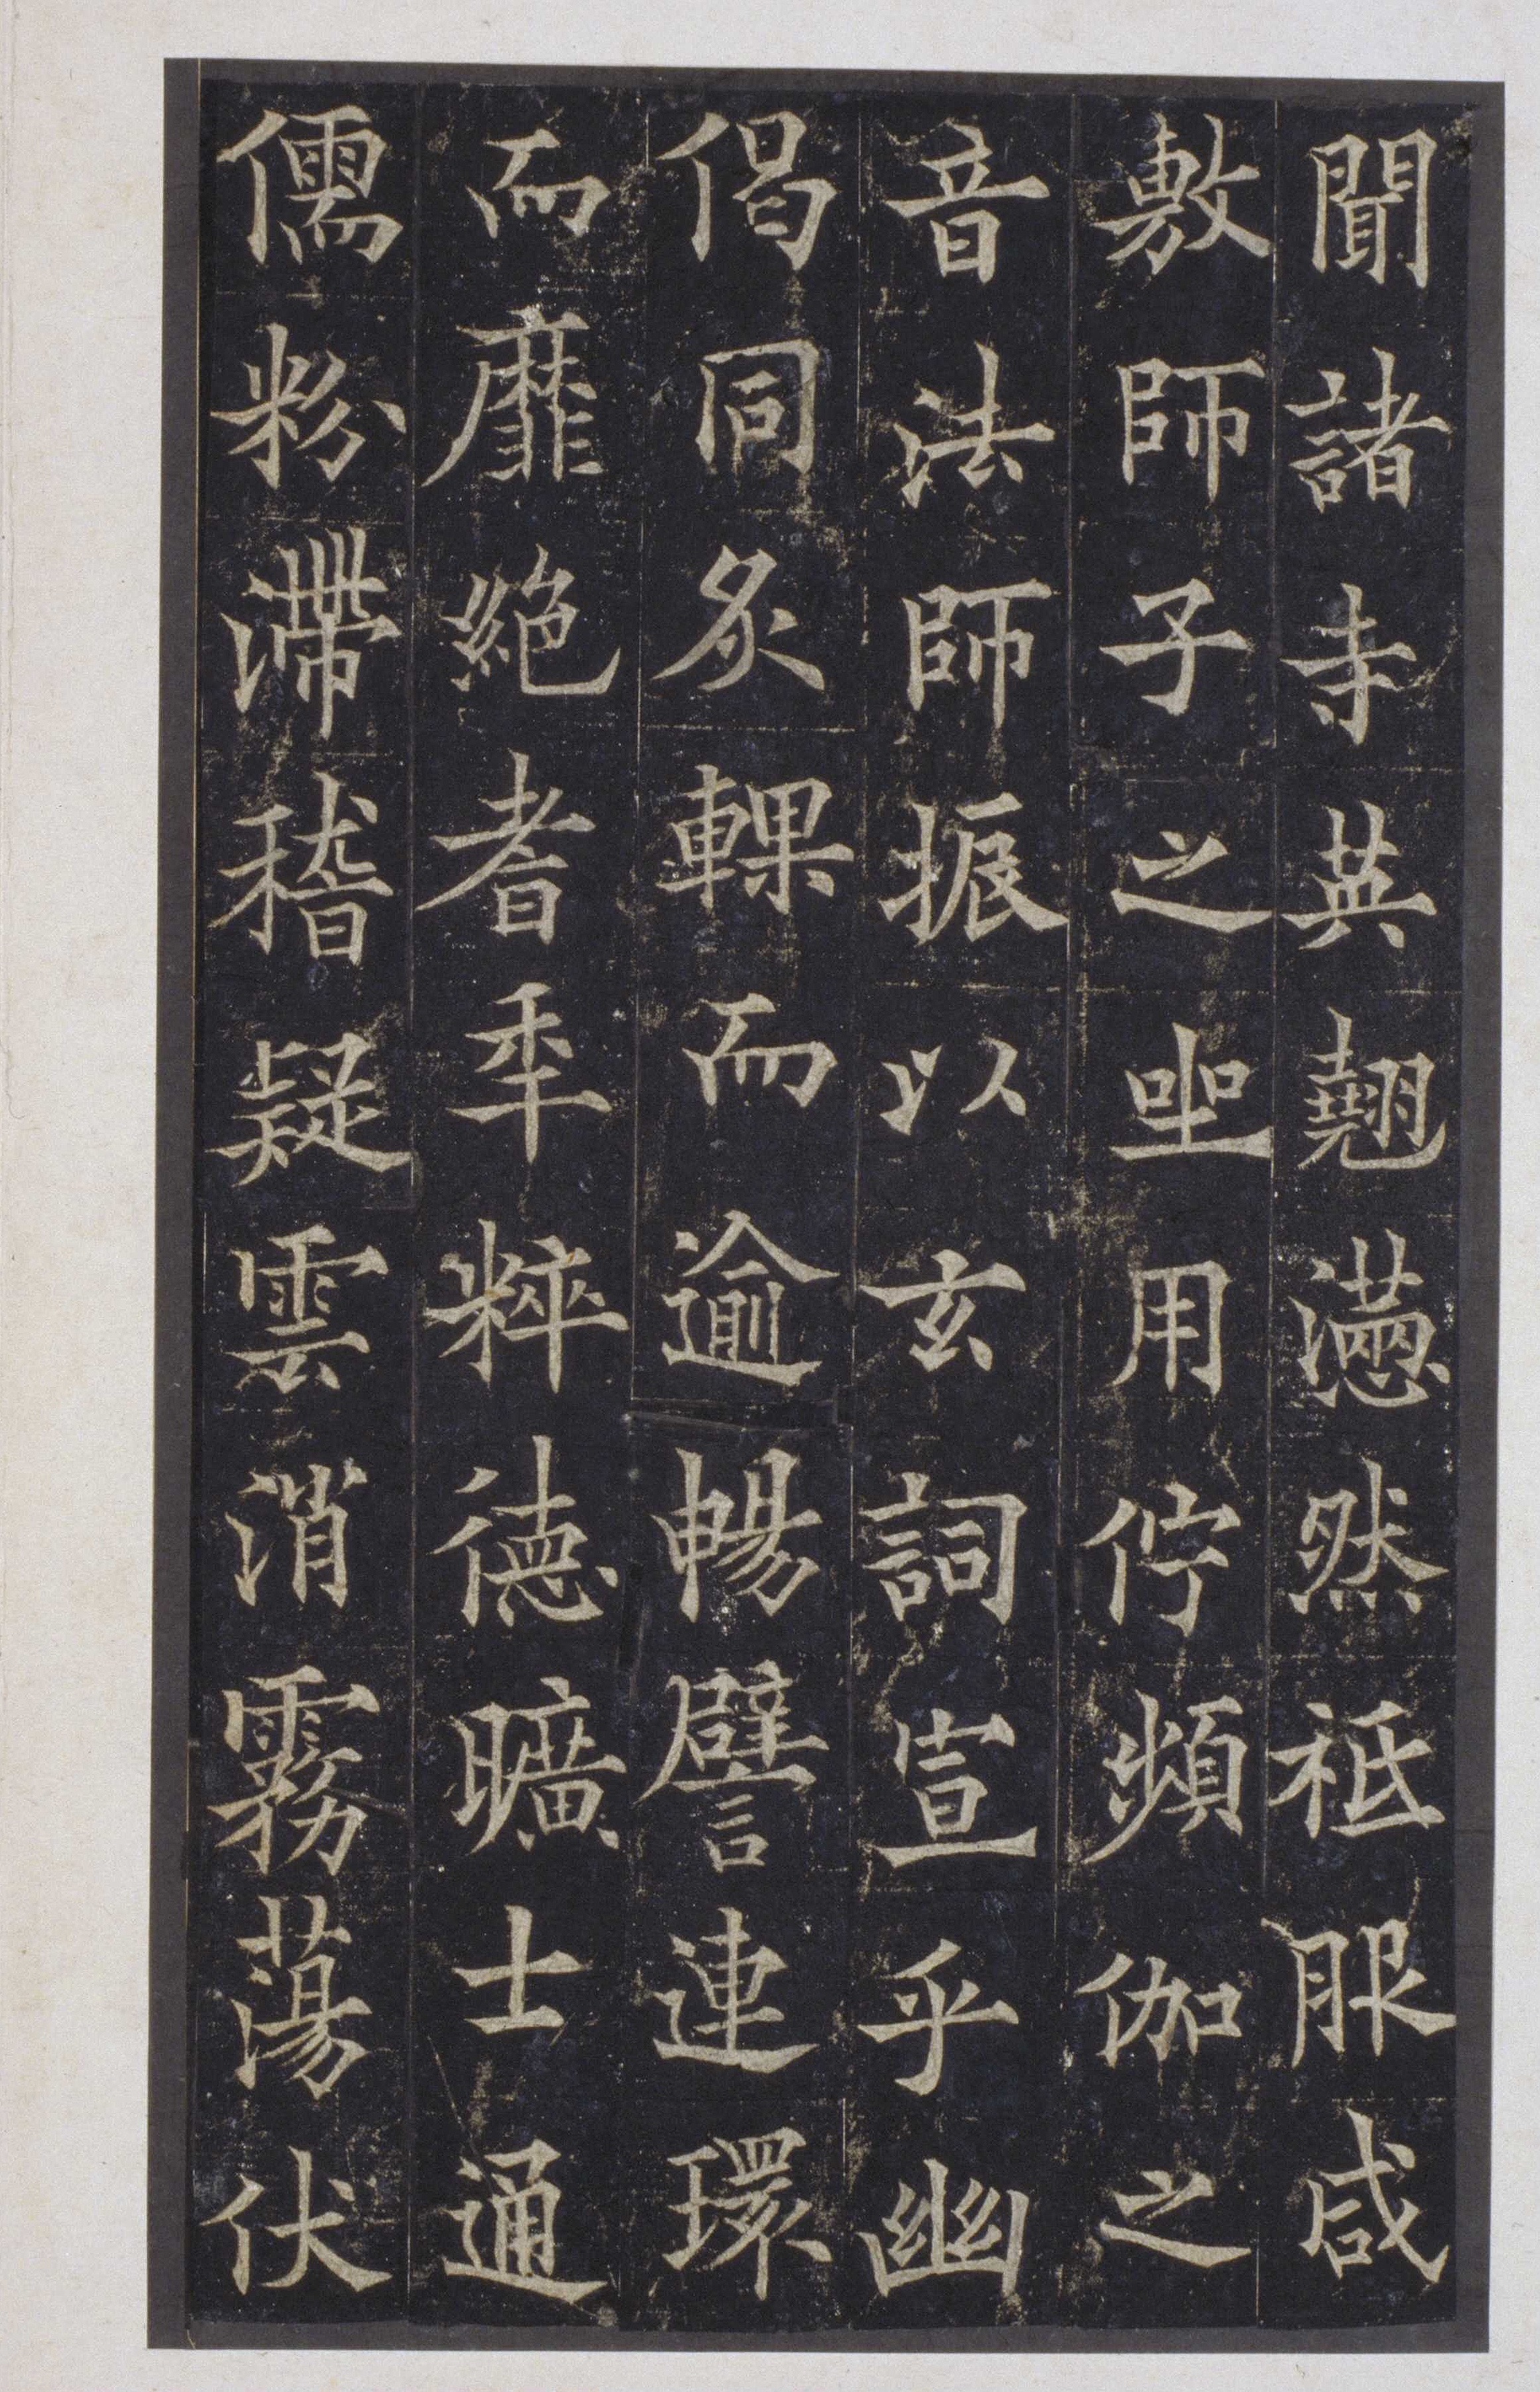 聞諸寺英翹懣然祗服咸
敷師子之㘴用佇頻伽之
音法師振以玄詞宣乎幽
偈同炙輠而逾暢譬連環
而靡絕耆年粹德曠士通
儒粉滯稽疑雲消霧蕩伏